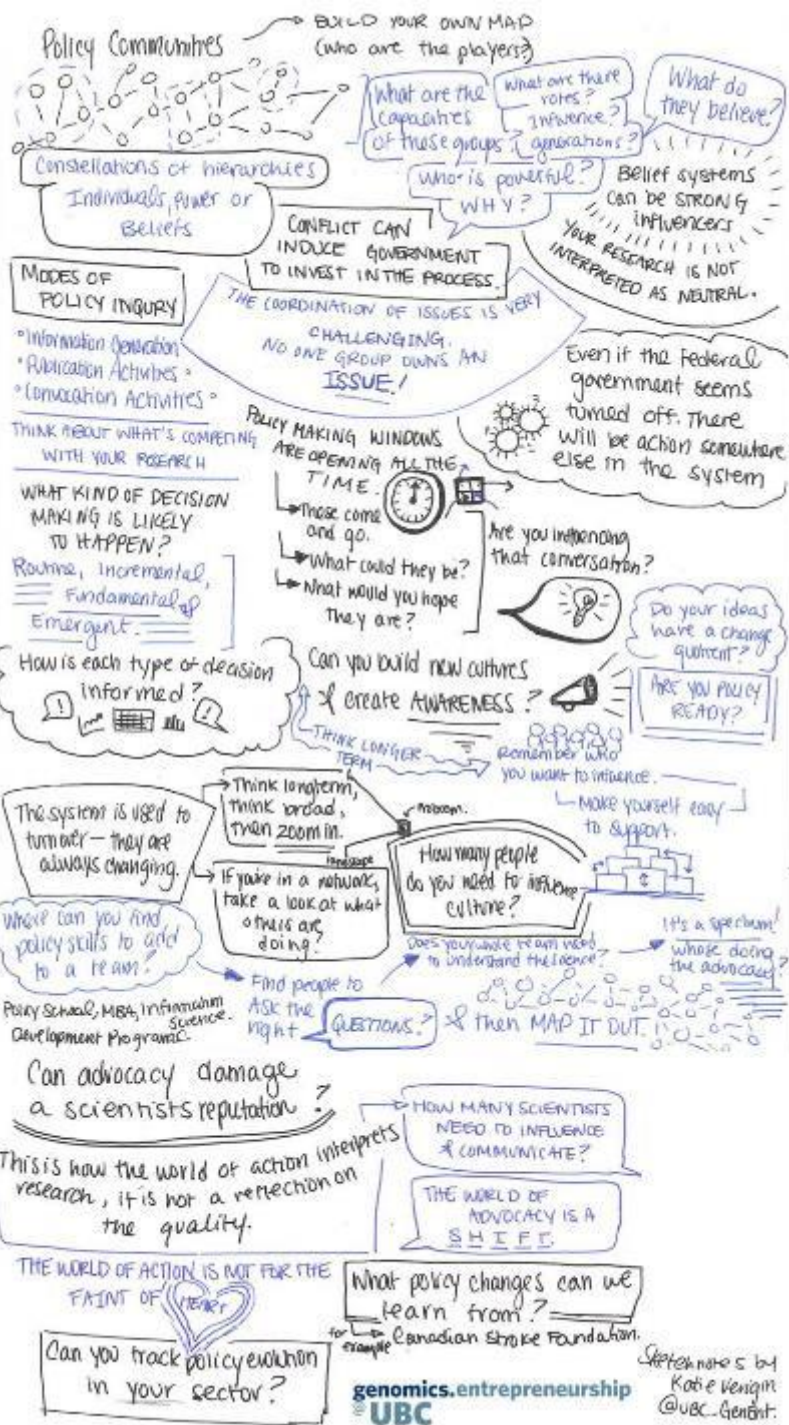 Policy Communities
BUILD YOUR OWN MAP
(who are the players?)
What are the
capacities
of those groups?
What are there
roles?
Influence?
generations?
What do
they believe?
Who is powerful?
WHY?
Constellations of hierarchies
Individuals, Power or
Beliefs
Belief systems
can be STRONG
influencers
YOUR RESEARCH IS NOT
INTERPRETED AS NEUTRAL.
CONFLICT CAN
INDUCE GOVERNMENT
TO INVEST IN THE PROCESS.
MODES OF
POLICY INQURY
• Information Generation
• Publication Activities •
• Convocation Activities •
THE COORDINATION OF ISSUES IS VERY
CHALLENGING.
NO ONE GROUP OWNS AN
ISSUE!
Even if the Federal
government seems
turned off. There
will be action somewhere
else in the system
THINK ABOUT WHAT'S COMPETING
WITH YOUR RESEARCH
POLICY MAKING WINDOWS
ARE OPENING ALL THE
TIME.
These come
and go.
What could they be?
What would you hope
they are?
WHAT KIND OF DECISION
MAKING IS LIKELY
TO HAPPEN?
Routine, Incremental,
Fundamental &
Emergent.
Are you influencing
that conversation?
Do your ideas
have a change
quotient?
ARE YOU POLICY
READY?
How is each type of decision
informed?
Can you build new cultures
& create AWARENESS?
THINK LONGER
TERM
Remember who
you want to influence.
Make yourself easy
to support.
The system is used to
turnover — they are
always changing.
Think longterm,
think broad,
then zoom in.
landscape
If you're in a network,
take a look at what
others are
doing?
How many people
do you need to influence
culture?
Where can you find
policy skills to add
to a team?
Policy School, MBA, Information
Science.
Development Programs.
Find people to
ASK the
right
QUESTIONS?
Does your whole team need
to understand the science?
It's a spectrum!
whose doing
the advocacy?
& then MAP IT OUT.
Can advocacy damage
a scientists reputation?
This is how the world of action interprets
research, it is not a reflection on
the quality.
HOW MANY SCIENTISTS
NEED TO INFLUENCE
& COMMUNICATE?
THE WORLD OF
ADVOCACY IS A
SHIFT.
THE WORLD OF ACTION IS NOT FOR THE
FAINT OF HEART
What policy changes can we
learn from?
for example
Canadian Stroke Foundation.
Can you track policy evolution
in your sector?
genomics.entrepreneurship
@UBC
Sketchnotes by
Katie